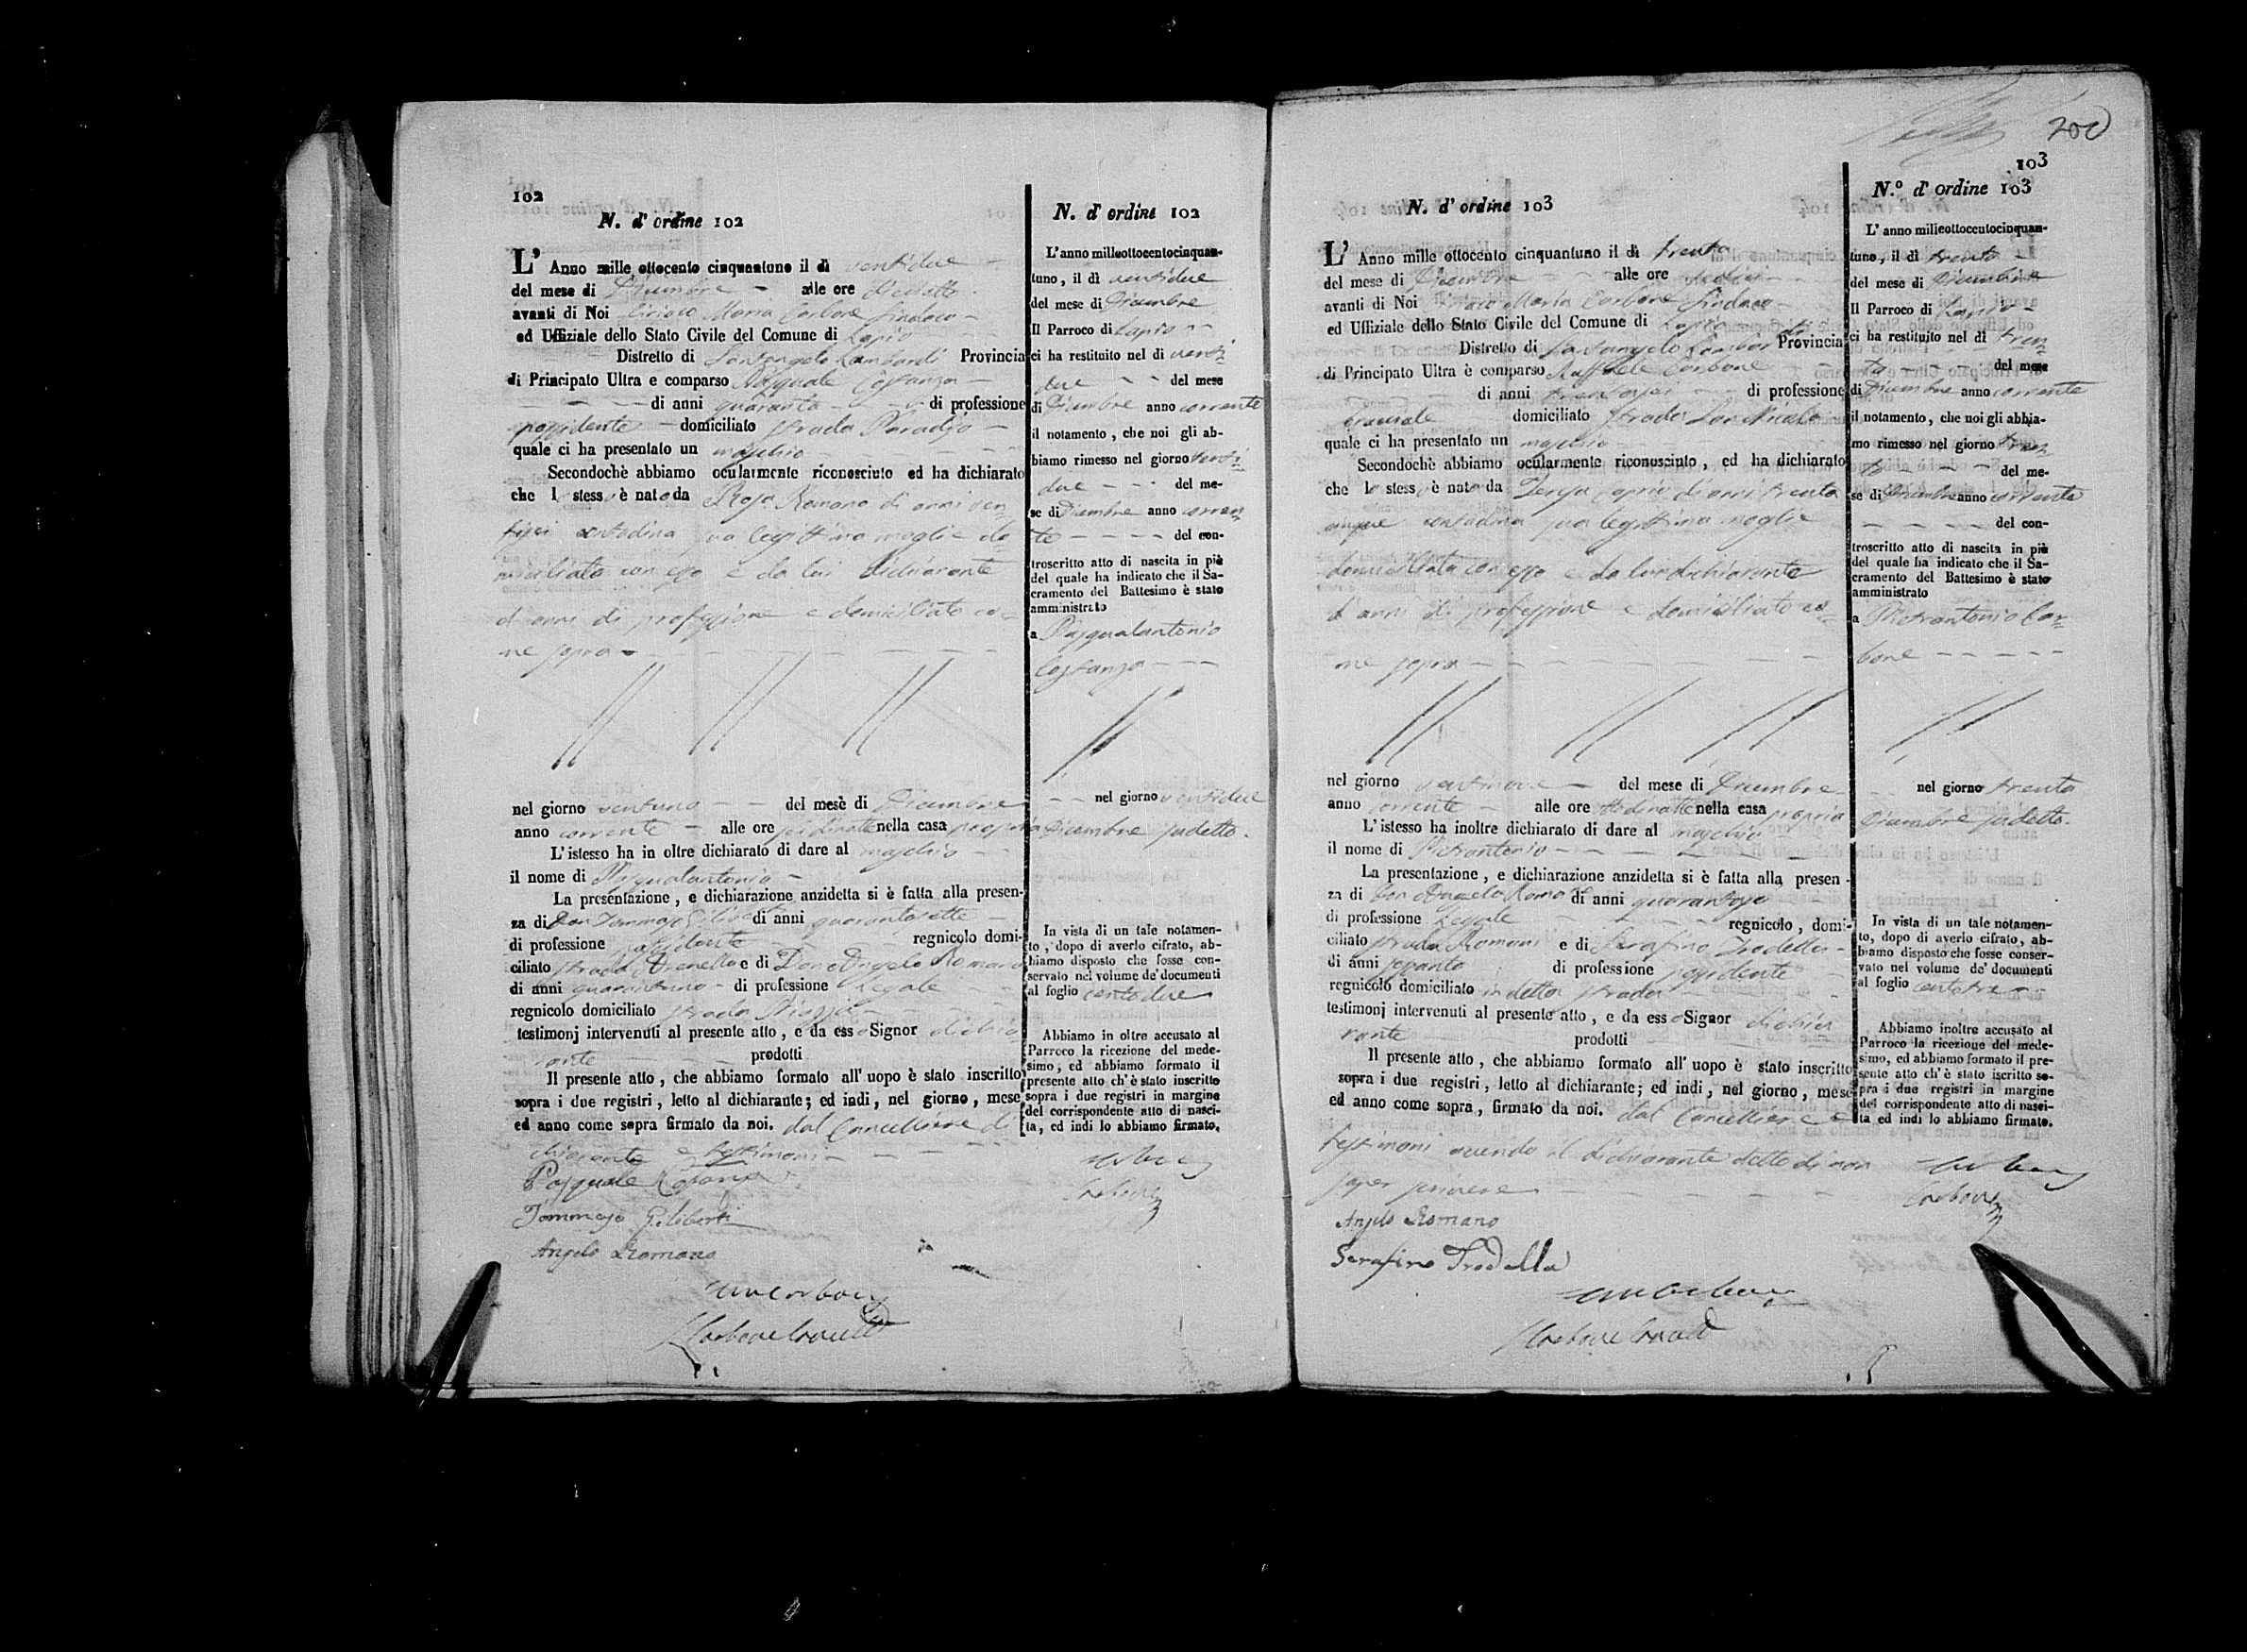 102
N. d' ordine 102
L' Anno mille ottocento cinquantuno il dì ventidue
del mese di Dicembre alle ore
avanti di Noi Ciriaco Maria Carbone Sindaco
ed Uffiziale dello Stato Civile del Comune di Lapio
Distretto di Santangelo Lombardi Provincia
di Principato Ultra e comparso Pasquale Costanza
di anni quaranta di professione
possidente domiciliato strada Paradiso
quale ci ha presentato un maschio
Secondochè abbiamo ocularmente riconosciuto ed ha dichiarato
che lo stesso è nato da Rosa Romano di anni ven
tisei contadina sua legittima moglie do
miciliata con esso e da lui dichiarante
d'anni di professione e domiciliato co
me sopra
nel giorno ventuno del mese di Dicembre
anno corrente alle ore sei di notte nella casa propria
L'istesso ha in oltre dichiarato di dare al maschio
il nome di Pasqualantonio
La presentazione, e dichiarazione anzidetta si è fatta alla presen-
za di Don Tommaso Giliberti di anni quarantasette
di professione possidente regnicolo domi-
ciliato strada Arenella e di Don Angelo Romano
di anni quarantuno di professione Legale
regnicolo domiciliato strada Piazza
testimonj intervenuti al presente atto, e da esso Signor dichia
rante prodotti
Il presente atto, che abbiamo formato all'uopo è stato inscritto
sopra i due registri, letto al dichiarante; ed indi, nel giorno, mese
ed anno come sopra firmato da noi. dal Cancelliere di
chiarante e testimoni
Pasquale Costanza
Tommaso Giliberti
Angelo Romano
N. d' ordine 102
L'anno milleottocentocinquan-
tuno, il dì ventidue
del mese di Dicembre
Il Parroco di Lapio
ci ha restituito nel dì venti
due del mese
di Dicembre anno corrente
il notamento, che noi gli ab-
biamo rimesso nel giorno venti
due del me-
se di Dicembre anno corren
te del con-
troscritto atto di nascita in piè
del quale ha indicato che il Sa-
cramento del Battesimo è stato
amministrato
a Pasqualantonio
Costanza
nel giorno ventidue
Dicembre sudetto.
In vista di un tale notamen-
to, dopo di averlo cifrato, ab-
biamo disposto che fosse con-
servato nel volume de' documenti
al foglio centodue
Abbiamo in oltre accusato al
Parroco la ricezione del mede-
simo, ed abbiamo formato il
presente atto ch'è stato inscritto
sopra i due registri in margine
del corrispondente atto di nasci-
ta, ed indi lo abbiamo firmato.
200
103
N. d' ordine 103
L' Anno mille ottocento cinquantuno il dì trenta
del mese di Dicembre alle ore
avanti di Noi Ciriaco Maria Carbone Sindaco
ed Uffiziale dello Stato Civile del Comune di Lapio
Distretto di Santangelo Lombardi Provincia
di Principato Ultra è comparso Raffaele Carbone
di anni trentasei di professione
domiciliato strada San Nicola
quale ci ha presentato un maschio
Secondochè abbiamo ocularmente riconosciuto, ed ha dichiarato
che lo stesso è nato da Teresa Caprio di anni trenta
cinque contadina sua legittima moglie
domiciliata con esso e da lui dichiarante
d'anni di professione e domiciliato co
me sopra
nel giorno ventinove del mese di Dicembre
anno corrente alle ore di notte nella casa propria
L'istesso ha inoltre dichiarato di dare al maschio
il nome di Pietrantonio
La presentazione, e dichiarazione anzidetta si è fatta alla presen-
za di Don Angelo Romano di anni
di professione Legale regnicolo, domi-
ciliato strada Romani e di Serafino Trodella
di anni di professione possidente
regnicolo domiciliato in detta strada
testimonj intervenuti al presente atto, e da esso Signor dichia
rante prodotti
Il presente atto, che abbiamo formato all'uopo è stato inscritto
sopra i due registri, letto al dichiarante; ed indi, nel giorno, mese
ed anno come sopra, firmato da noi. dal Cancelliere e
testimoni avendo il dichiarante detto di non
saper scrivere
Angelo Romano
Serafino Trodella
N.º d' ordine 103
L' anno milleottocentocinquan-
tuno, il dì trenta
del mese di Dicembre
Il Parroco di Lapio
ci ha restituito nel dì tren
ta del mese
di Dicembre anno corrente
il notamento, che noi gli abbia-
mo rimesso nel giorno tren
ta del me-
se di Dicembre anno corrente
del con-
troscritto atto di nascita in piè
del quale ha indicato che il Sa-
cramento del Battesimo è stato
amministrato
a Pietrantonio Car
bone
nel giorno trenta
Dicembre sudetto.
In vista di un tale notamen-
to, dopo di averlo cifrato, ab-
biamo disposto che fosse conser-
vato nel volume de' documenti
al foglio centotre
Abbiamo inoltre accusato al
Parroco la ricezione del mede-
simo, ed abbiamo formato il pre-
sente atto ch'è stato iscritto so-
pra i due registri in margine
del corrispondente atto di nasci-
ta ed indi lo abbiamo firmato.